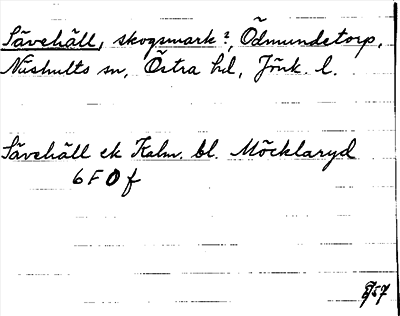 Sävehäll, skogsmark?, Ödmundetorp,
Näshults sn, Östra hd, Jönk. l.
Sävehäll ek Kalm. bl. Möcklaryd
6 F 0 f
57